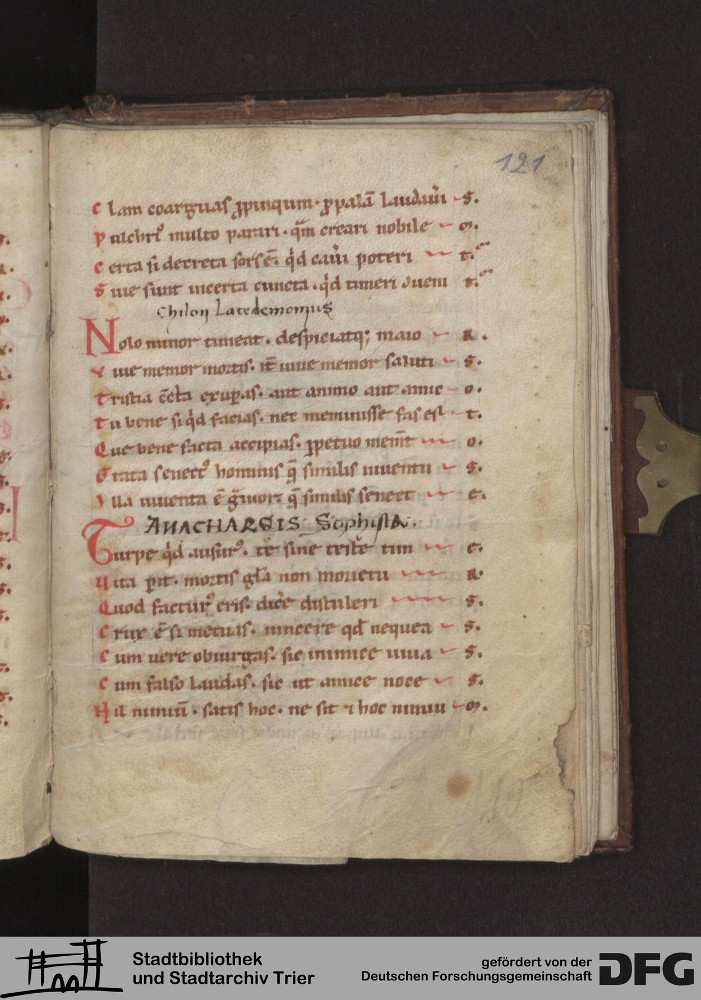 121
Clam coarguas ꝓpinquum · ꝓpalā laudaūi s.
Pulchrꝰ multo parari · qm̄ creari nobile m.
Certa si decreta sors ē · qͥd cauī poteri t.
Siue sunt incerta cuncta · qͥd timeri dueni t.
Chilon Lacedemonius
Nolo minor timeat · despiciatqꝫ maio R.
Viue memor mortis · it̄ uiue memor saluti s.
Tristia cūcta exuꝑas · aut animo aut amic o.
Tu bene si qͥd facias · nec meminisse fas est t.
Que bene facta accipias · ꝑpetuo mem̄t o.
Grata senectꝰ hominis q̄ similis iuuentu s.
Illa iuuenta ē gͣuior q̄ similis senect e.
ANACHARSIS Sophista.
Turpe qͥd ausurꝰ · te sine teste tim e.
Vita ꝑit · mortis gła non morietu R.
Quod facturꝰ eris · dicĕ distuleri s.
Crux ē si metuas · uincere qd̄ nequea s.
Cum uere obiurgas · sic inimice iuua s.
Cum falso laudas · sic ut amice noce s.
Nil nimiū · satis hoc · ne sit ⁊ hoc nimiu m.
Stadtbibliothek
und Stadtarchiv Trier
gefördert von der
Deutschen Forschungsgemeinschaft
DFG